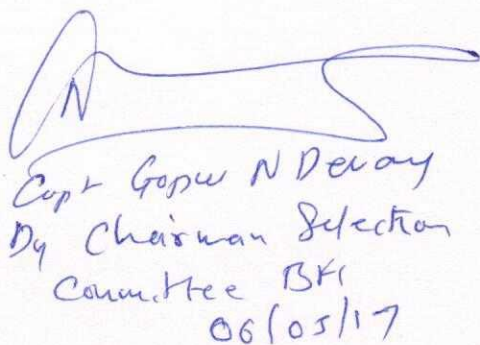 Capt Gopu N Devang
Dy Chairman Selection
Committee BFI
06/05/17